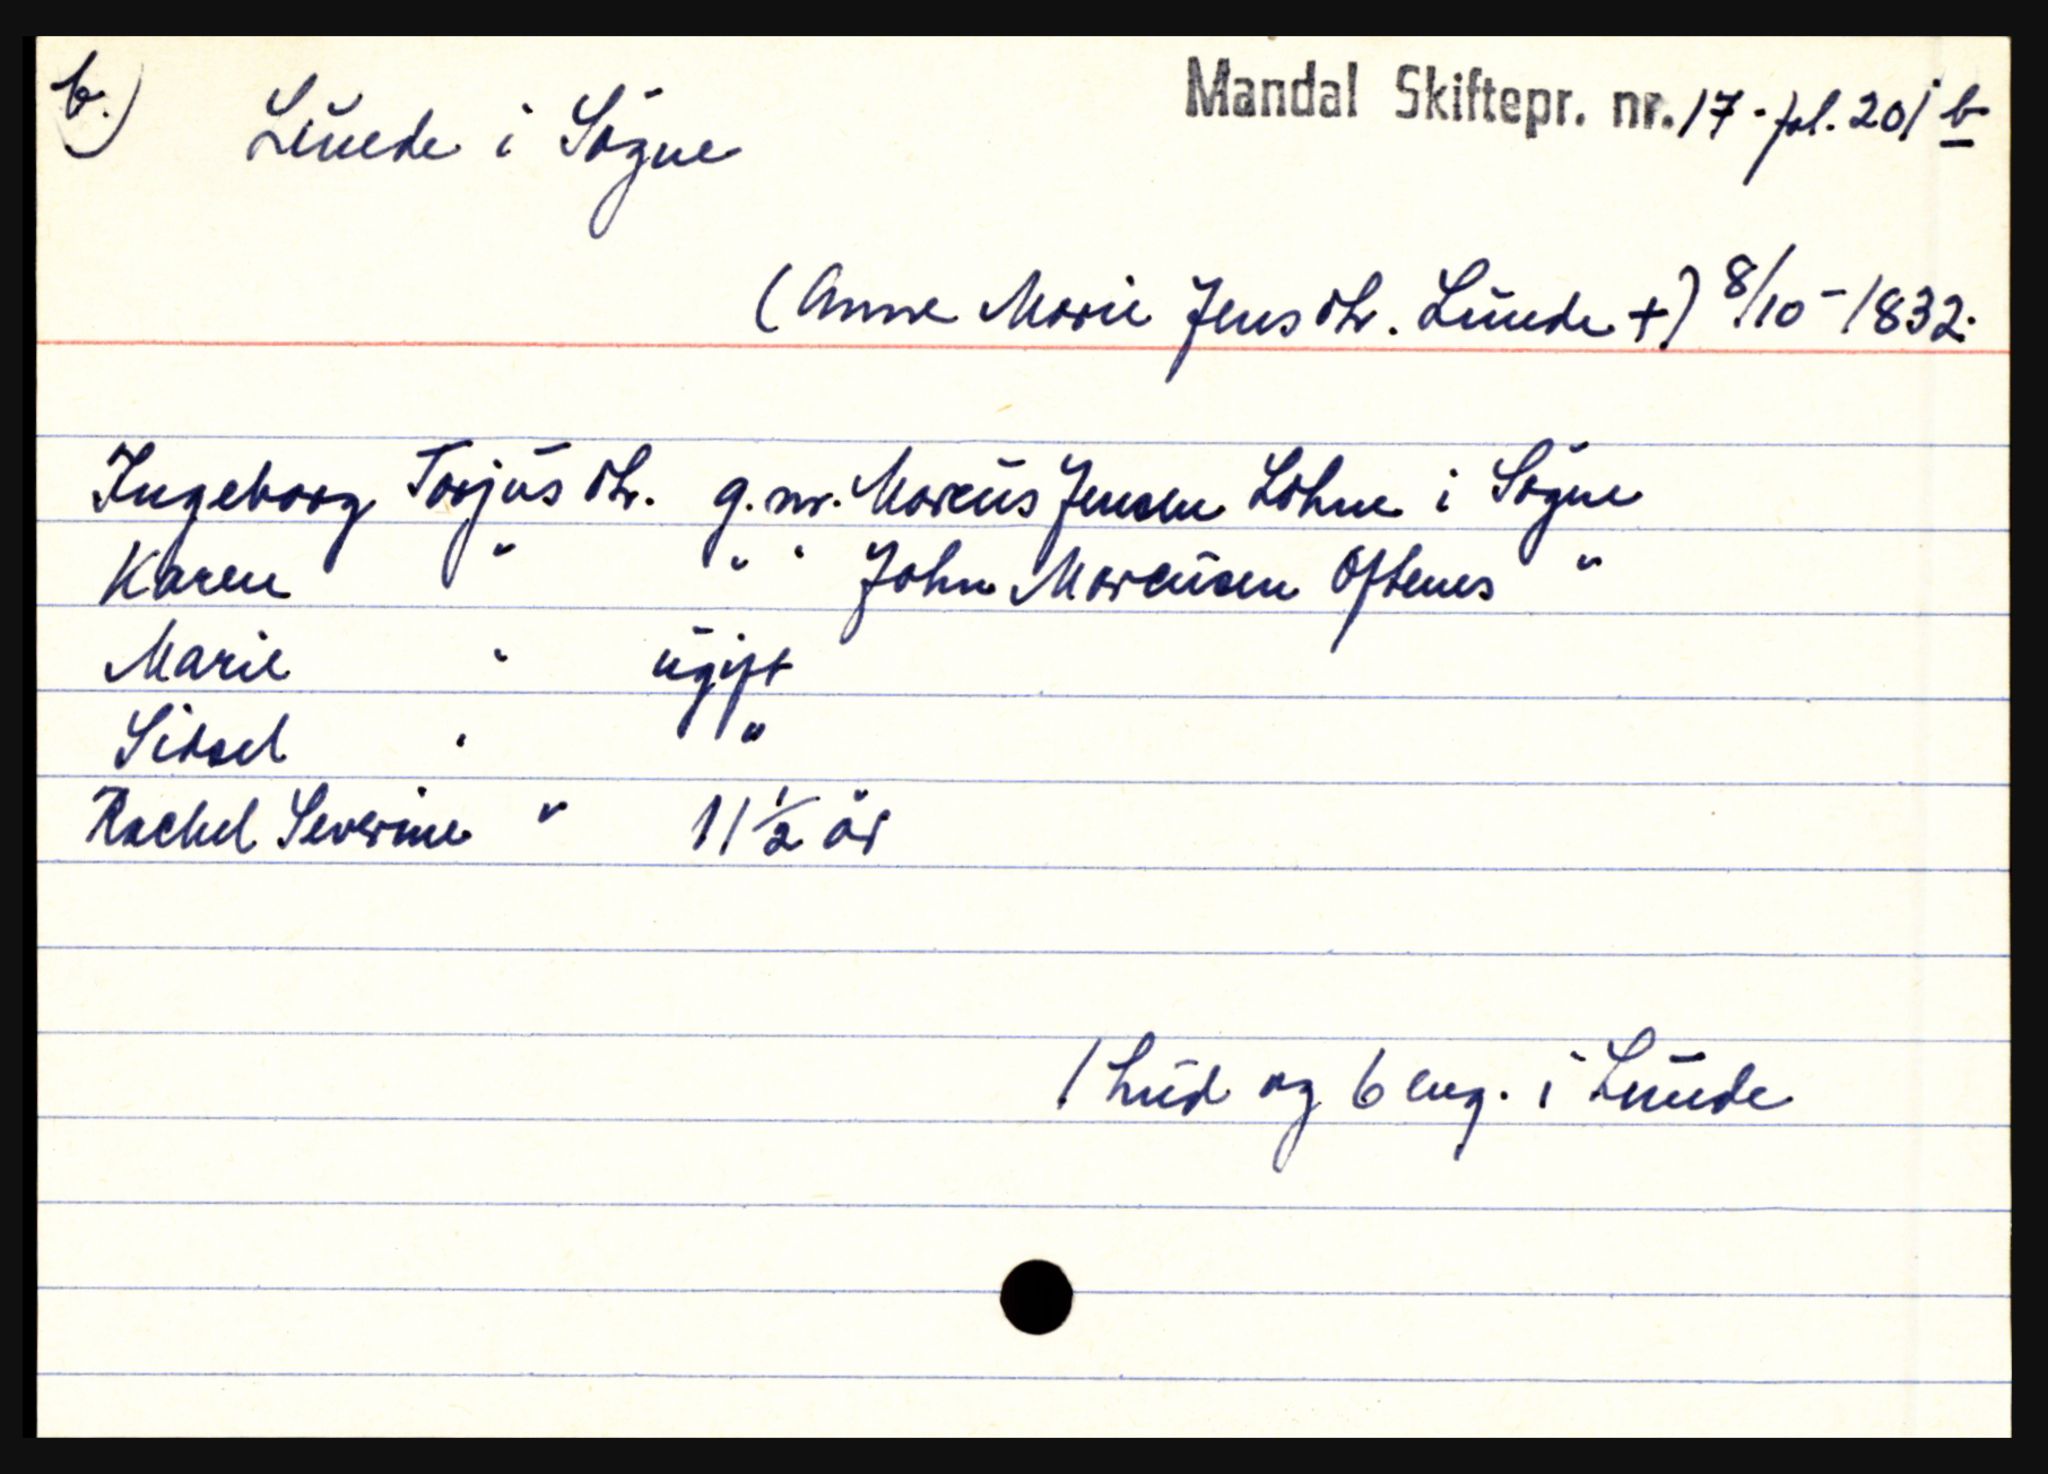 b.) Lunde i Søgne Mandal Skiftepr. nr. 17 - fol. 201 b
(Anne Marie Jensdtr. Lunde +) 8/10 - 1832.
Ingeborg Torjusdtr. g.m. Marcus Jensen Lohne i Søgne
Karen " " " John Marcusen Oftenes "
Marie " ugift
Sidsel " "
Rachel Severine " 11 1/2 år
1 hud og 6 eng. i Lunde